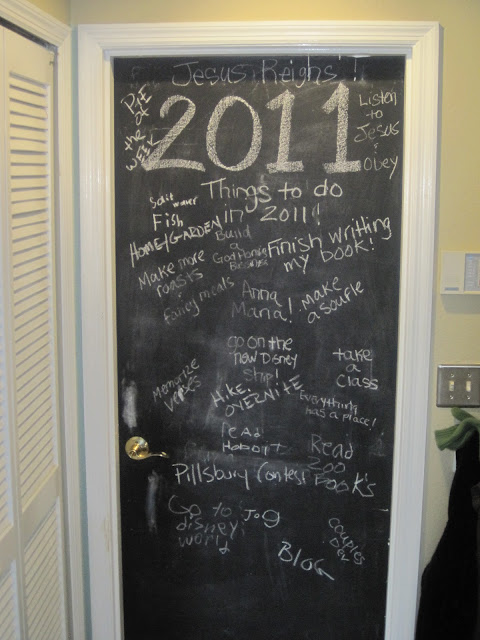 Jesus Reigns!!
PiE
of
the
WEEK
2011
Listen
to
Jesus
&
obey
Things to do
in 2011!
Salt water
Fish
HOME/GARDEN
Build
a
God Honoring
Business
Finish writting
my book!
Make more
roasts
Fancy meals
Anna
Maria!
make
a soufle
go on the
new Disney
ship!
take
a
class
Memorize
verses
HiKE.
OVERNITE
Everything
has a place!
read
Read
200
Book's
Pillsbury Contest
Go to
disney
world
Jog
couples
Blog